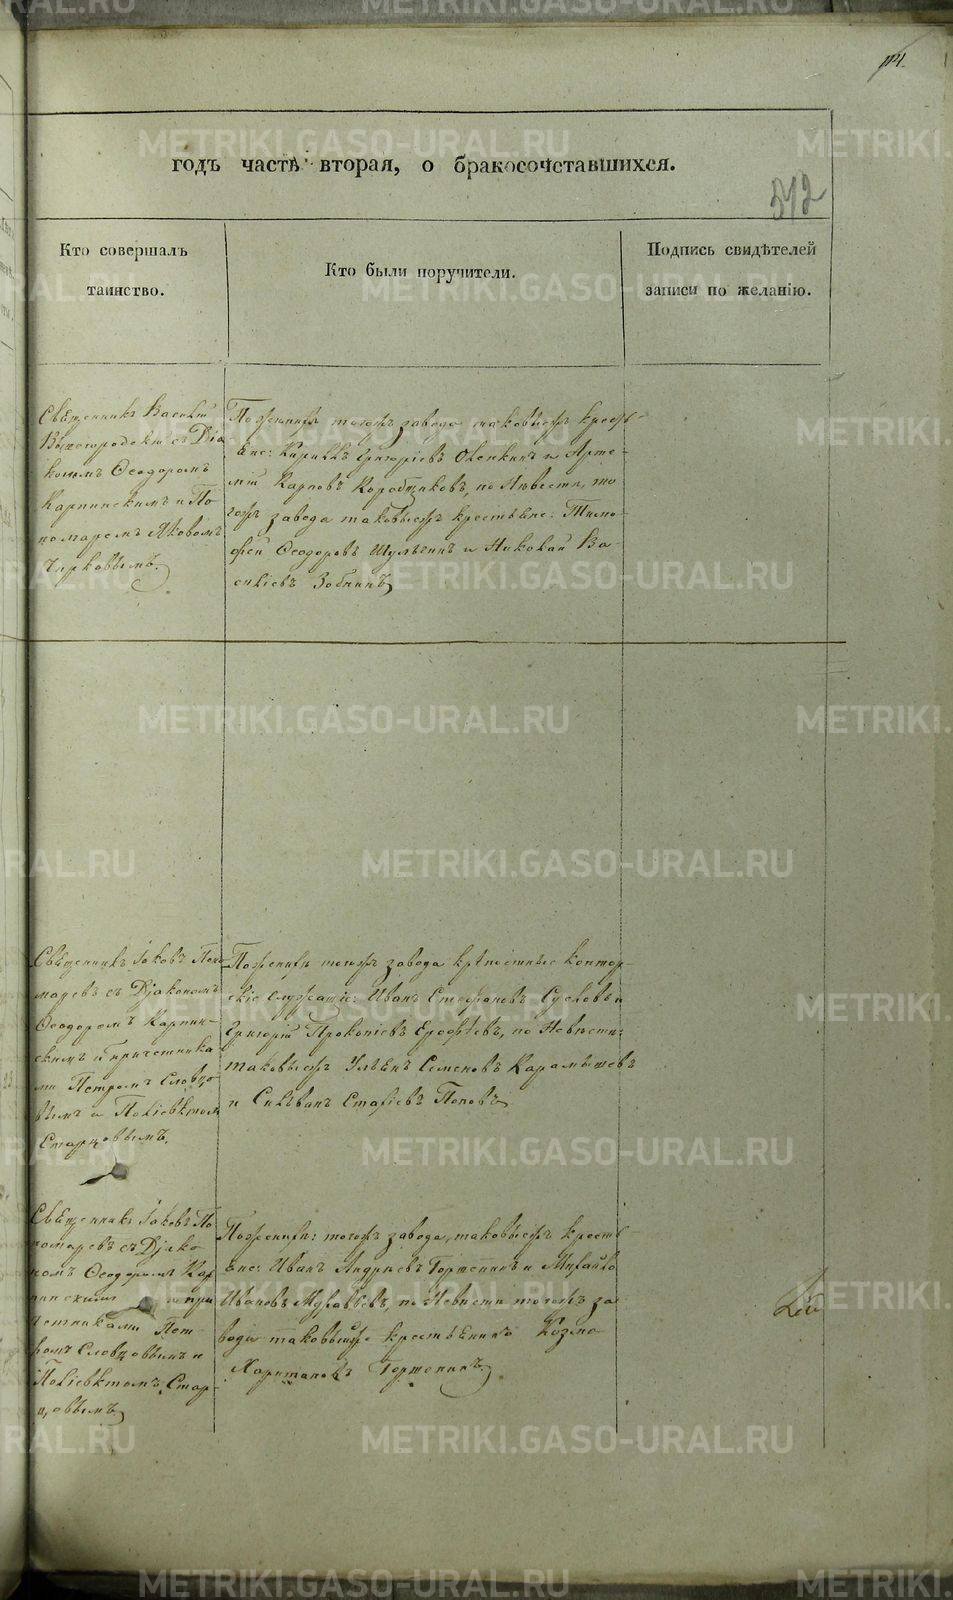 114.
годъ часть вторая, о бракосочетавшихся.
312
Кто совершалъ
таинство.
Кто были поручители.
Подпись свидѣтелей
записи по желанію.
Священникъ Василій
Вышегородскій съ Діа
кономъ Ѳеодоромъ
Карпинскимъ и По
номаремъ Яковомъ
Чирковымъ.
По женихѣ тогожъ завода таковыежъ кресть
яне: Кириллъ Григоріевъ Оленкинъ и Арте-
мій Карповъ Коробщиковъ, по Невѣстѣ, то
гожъ завода таковыежъ крестьяне: Тимо-
фей Ѳеодоровъ Шульгинъ и Николай Ва-
силіевъ Зобнинъ
Священникъ Іаковъ Поно
маревъ съ Діакономъ
Ѳеодоромъ Карпин-
скимъ и Причетника
ми Петромъ Словцо
вымъ и Поліевктомъ
Старцовымъ.
По женихѣ тогожъ завода крѣпостные контор-
скіе служащіе: Иванъ Стефановъ Сусловъ и
Григорій Прокопіевъ Ерофѣевъ, по Невѣстѣ:
таковыежъ Ульянъ Семеновъ Карамышевъ
и Сильванъ Стахіевъ Поповъ
Священникъ Іаковъ По
номаревъ съ Діако
номъ Ѳеодоромъ Кар
пинскимъ и при
четниками Пет-
ромъ Словцовымъ и
Поліевктомъ Стар-
цовымъ
По женихѣ: тогожъ завода, таковыежъ кресть-
яне: Иванъ Андреевъ Горшенинъ и Михайло
Ивановъ Муравьевъ, по Невѣстѣ тогожъ за-
вода таковыежъ крестьянинъ Козма
Харитоновъ Горшенинъ
METRIKI.GASO-URAL.RU